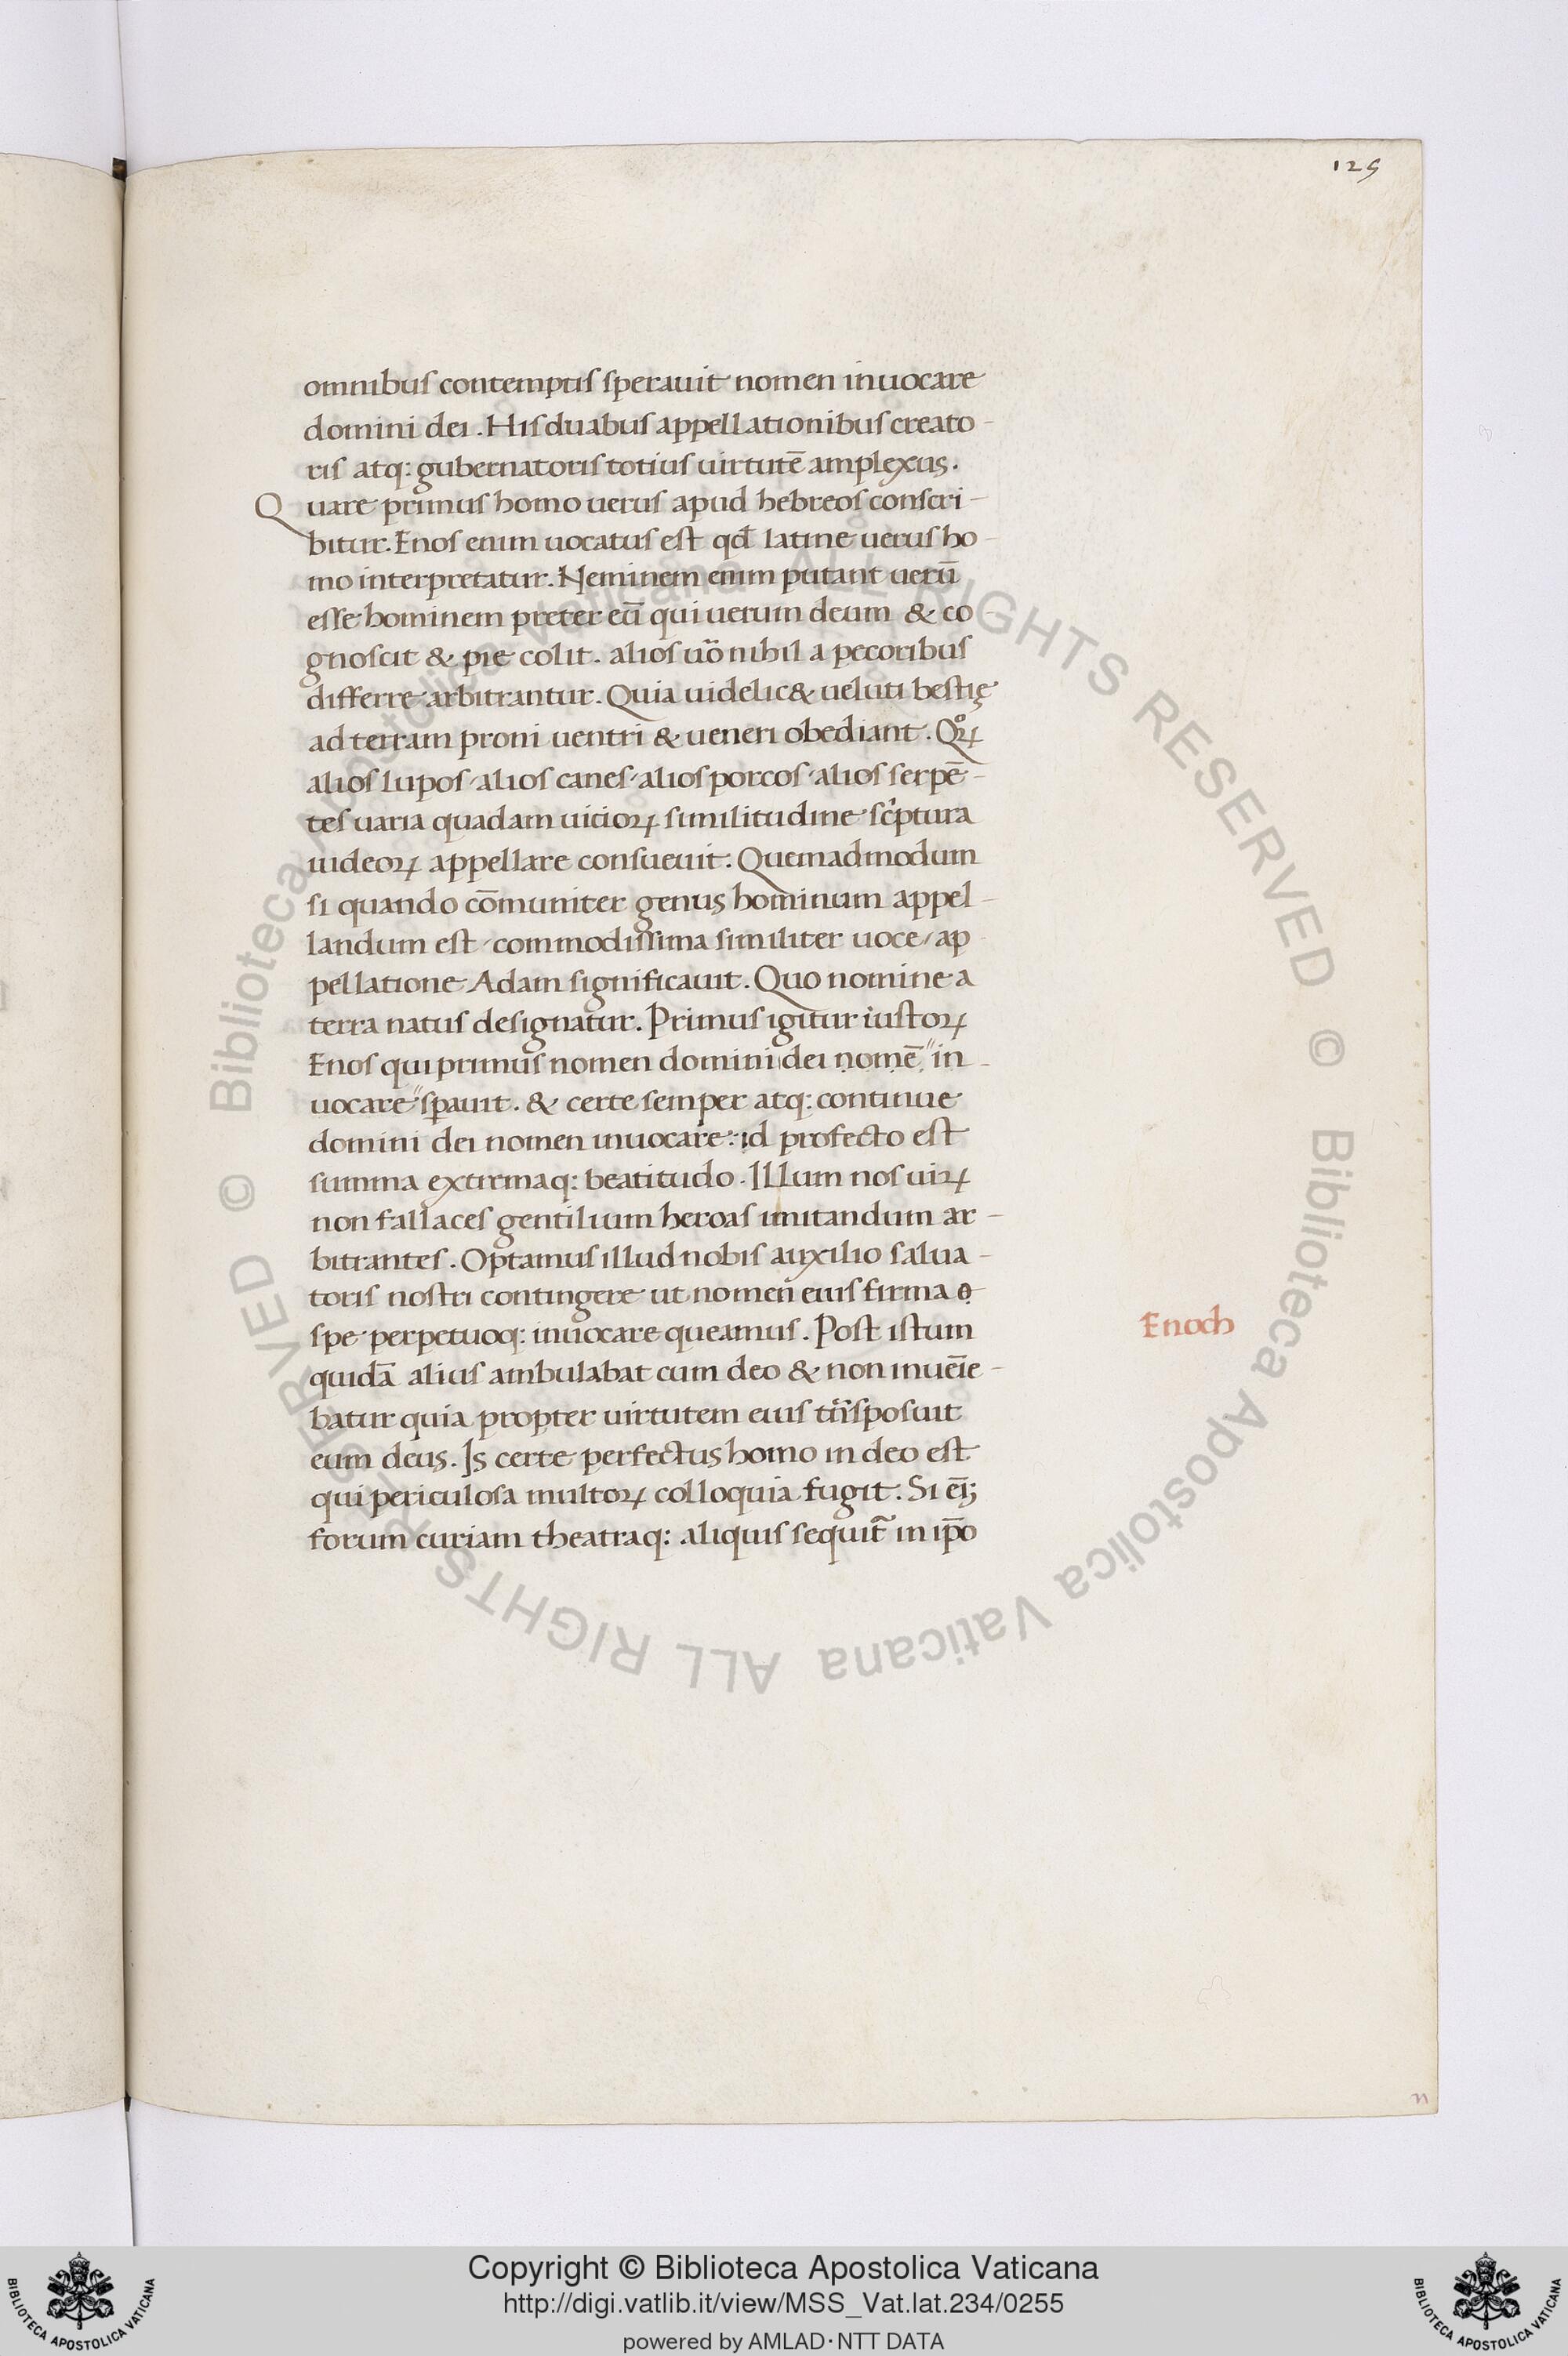 125
omnibus contemptis sperauit nomen inuocare
domini dei. His duabus appellationibus creato-
ris atq: gubernatoris totius uirtutē amplexus.
Quare primus homo uerus apud hebreos conscri-
bitur. Enos enim uocatus est qđ latine uerus ho-
mo interpretatur. Neminem enim putant uerū
esse hominem preter eū qui uerum deum & co-
gnoscit & pie colit. alios uō nihil a pecoribus
differre arbitrantur. Quia uidelic& ueluti bestię
ad terram proni uentri & ueneri obediant. Qoꝝ
alios lupos, alios canes, alios porcos, alios serpē-
tes uaria quadam uitioꝝ similitudine sc'ptura
iudeoꝝ appellare consueuit: Quemadmodum
si quando cōmuniter genus hominum appel-
landum est, commodissima similiter uoce, ap
pellatione Adam significauit. Quo nomine a
terra natus designatur. Primus igitur iustoꝝ
Enos qui primus nomen domini dei nomē in-
uocare sꝑauit. & certe semper atq: continue
domini dei nomen inuocare: id profecto est
summa extremaq: beatitudo. Illum nos uiꝝ
non fallaces gentilium heroas imitandum ar-
bitrantes. Optamus illud nobis auxilio salua-
toris nostri contingere ut nomen eius firma
spe perpetuoq: inuocare queamus. Post istum
Enoch
quidā alius ambulabat cum deo & non inueīe-
batur quia propter uirtutem eius trñsposuit
eum deus. Is certe perfectus homo in deo est
qui periculosa multoꝝ colloquia fugit. Si eī;
forum curiam theatraq: aliquis sequit᷑ in ip̄o
n
© Biblioteca Apostolica Vaticana ALL RIGHTS RESERVED © Biblioteca Apostolica Vaticana ALL RIGHTS RESERVED
Copyright © Biblioteca Apostolica Vaticana
http://digi.vatlib.it/view/MSS_Vat.lat.234/0255
powered by AMLAD·NTT DATA
BIBLIOTECA APOSTOLICA VATICANA
BIBLIOTECA APOSTOLICA VATICANA